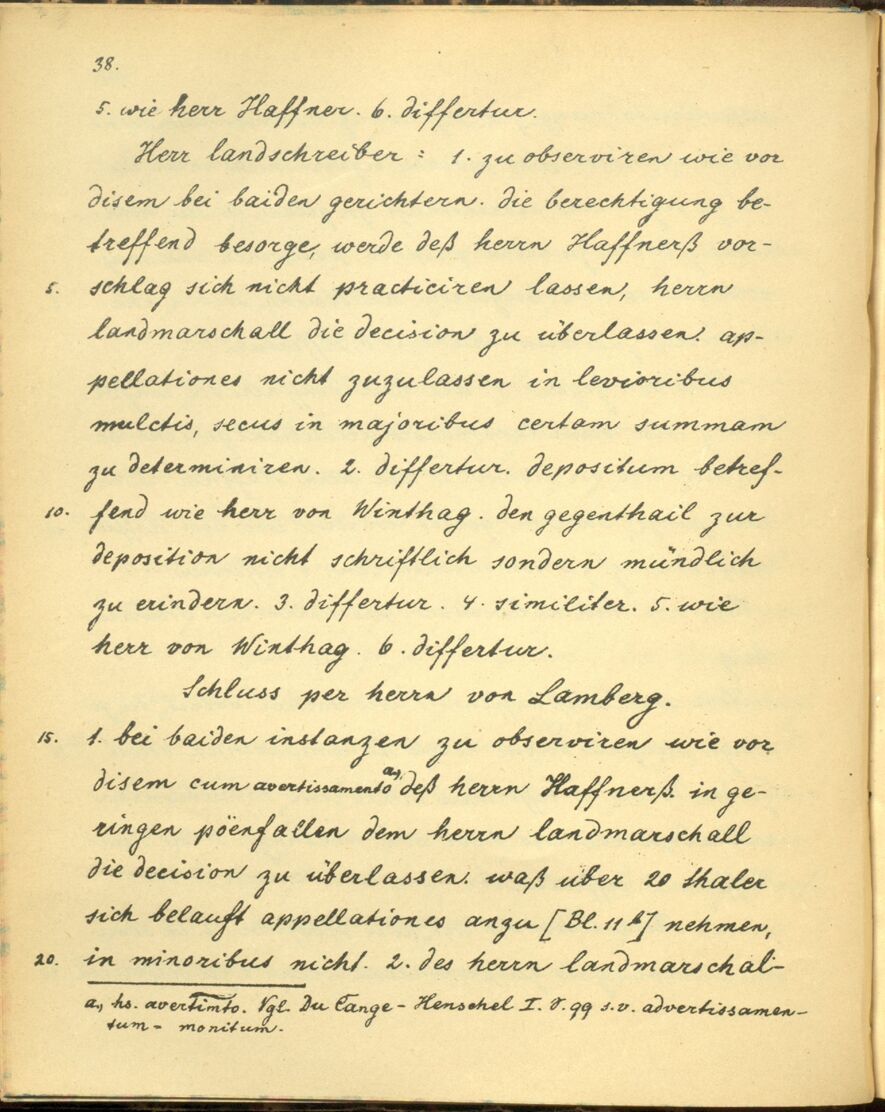 38.
5. wie herr Haffner. 6. differtur.
Herr landschreiber : 1. zu observiren wie vor
disem bei baiden gerichtern. die berechtigung be-
treffend besorge, werde deß herrn Haffnerß vor-
5. schlag sich nicht practiciren lassen, herrn
landmarschall die decision zu überlassen. ap-
pellationes nicht zuzulassen in levioribus
mulctis, secus in majoribus certam summam
zu determiniren. 2. differtur. depositum betref-
10. fend wie herr von Winthag. den gegenthail zur
deposition nicht schriftlich sondern mündlich
zu erindern. 3. differtur. 4. similiter. 5. wie
herr von Winthag. 6. differtur.
Schluss per herrn von Lamberg.
15. 1. bei baiden instanzen zu observiren wie vor
disem cum avertissamento a) deß herrn Haffnerß. in ge-
ringen pöenfallen dem herrn landmarschall
die decision zu überlassen. waß über 20 thaler
sich belauft appellationes anzu [Bl. 11 b] nehmen,
20. in minoribus nicht. 2. des herrn landmarschal-
a) hs. avertimto. Vgl. Du Cange - Henschel I. S. 99 s.v. advertissamen-
tum - monitum.